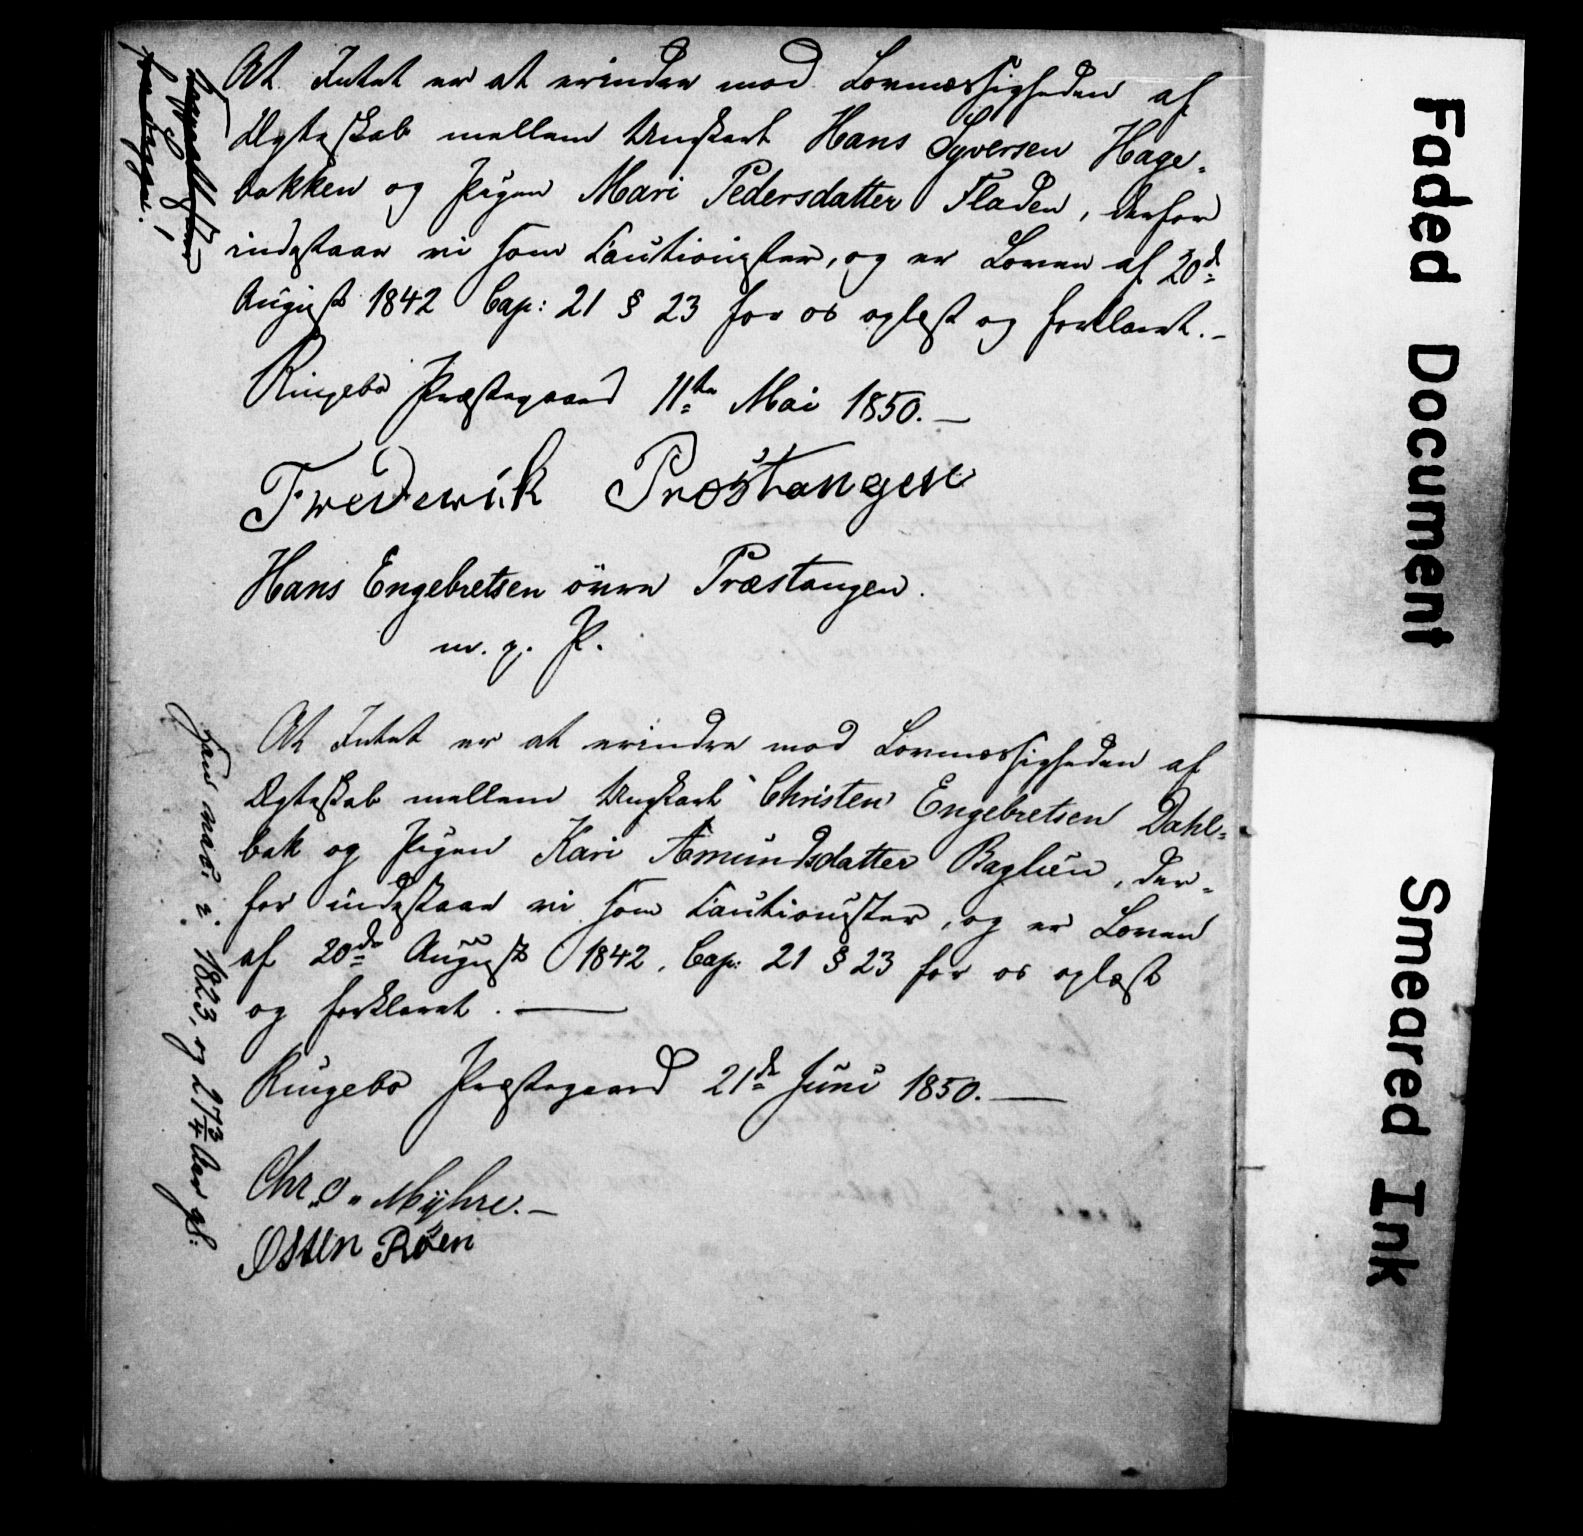 At Intet er at erindre mod Lovmæssigheden af
Ægteskab mellem Ungkarl Hans Syversen Hage-
bakken og Pigen Mari Pedersdatter Fladen, derfor
indestaae vi som Cautionister, og er Loven af 20d
August 1842 Cap: 21 § 23 for os oplæst og forklaret.-
Ringebo Præstegaard 11te Mai 1850.—
Frederik Præstangen
Hans Engebretsen övre Præstangen.
m. p. P.
At Intet er at erindre mod Lovmæssigheden af
Ægteskab mellem Ungkarl Christen Engebretsen Dahl=
bak og Pigen Kari Amundsdatter Baglien, der-
for indestaae vi som Cautionister, og er Loven
af 20de August 1842, Cap: 21 § 23 for os oplæst
og forklaret. —
Ringebo Præstegaard 21de Juni 1850.—
Chr. O. Myhre.—
Østen Röen
1823, og 27 3/4 Aar gl:
Faded Document
Smeared Ink